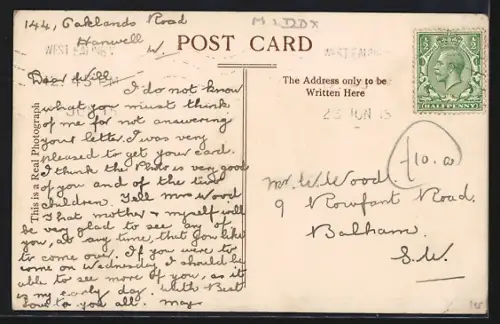 144, Oaklands Road
Hanwell
W.
MIDDX
POST CARD
WEST EALING
WEST EALING
12.45 PM
23 JUN 13
HALFPENNY
The Address only to be
Written Here
This is a Real Photograph
Dear Will,
I do not know
what you must think
of me for not answering
your letter. I was very
pleased to get your card.
I think the Photo is very good
of you and of the two
children. Tell Mrs Wood
That mother & myself will
be very glad to see any of
you, at any time, that you like
to come over. If you were to
come on Wednesday I should be
able to see more of you, as it
is my early day. With Best
love to you all. May
£10.00
Mr. W. Wood.
9 Rowfant Road.
Balham.
S.W.